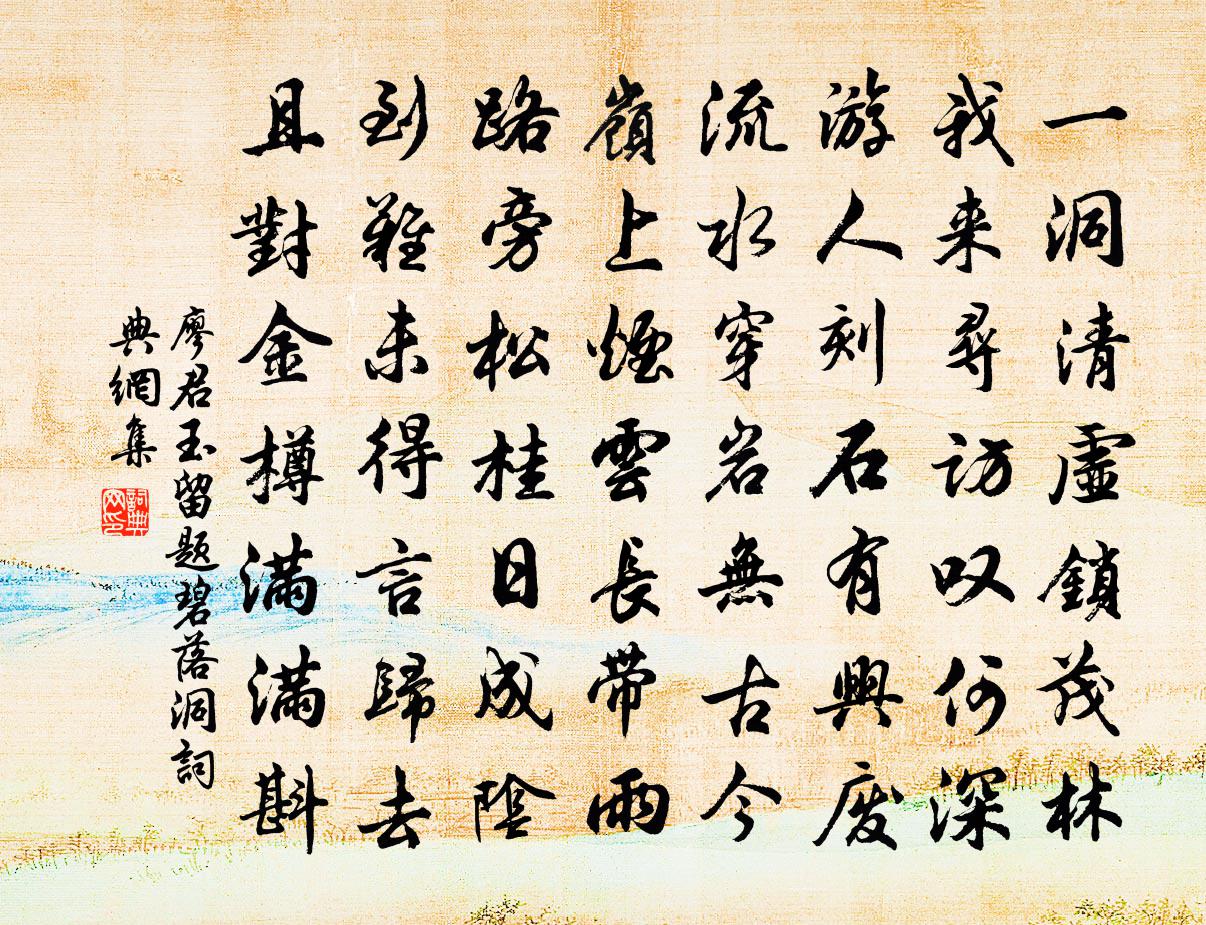 一洞清虛鎖茂林
我来尋訪叹何深
游人刻石有興废
流水穿岩無古今
嶺上煙雲長帶雨
路旁松桂日成陰
到難未得言歸去
且對金樽滿滿斟
廖君玉留題碧落洞詞
典網集
詞典
网印